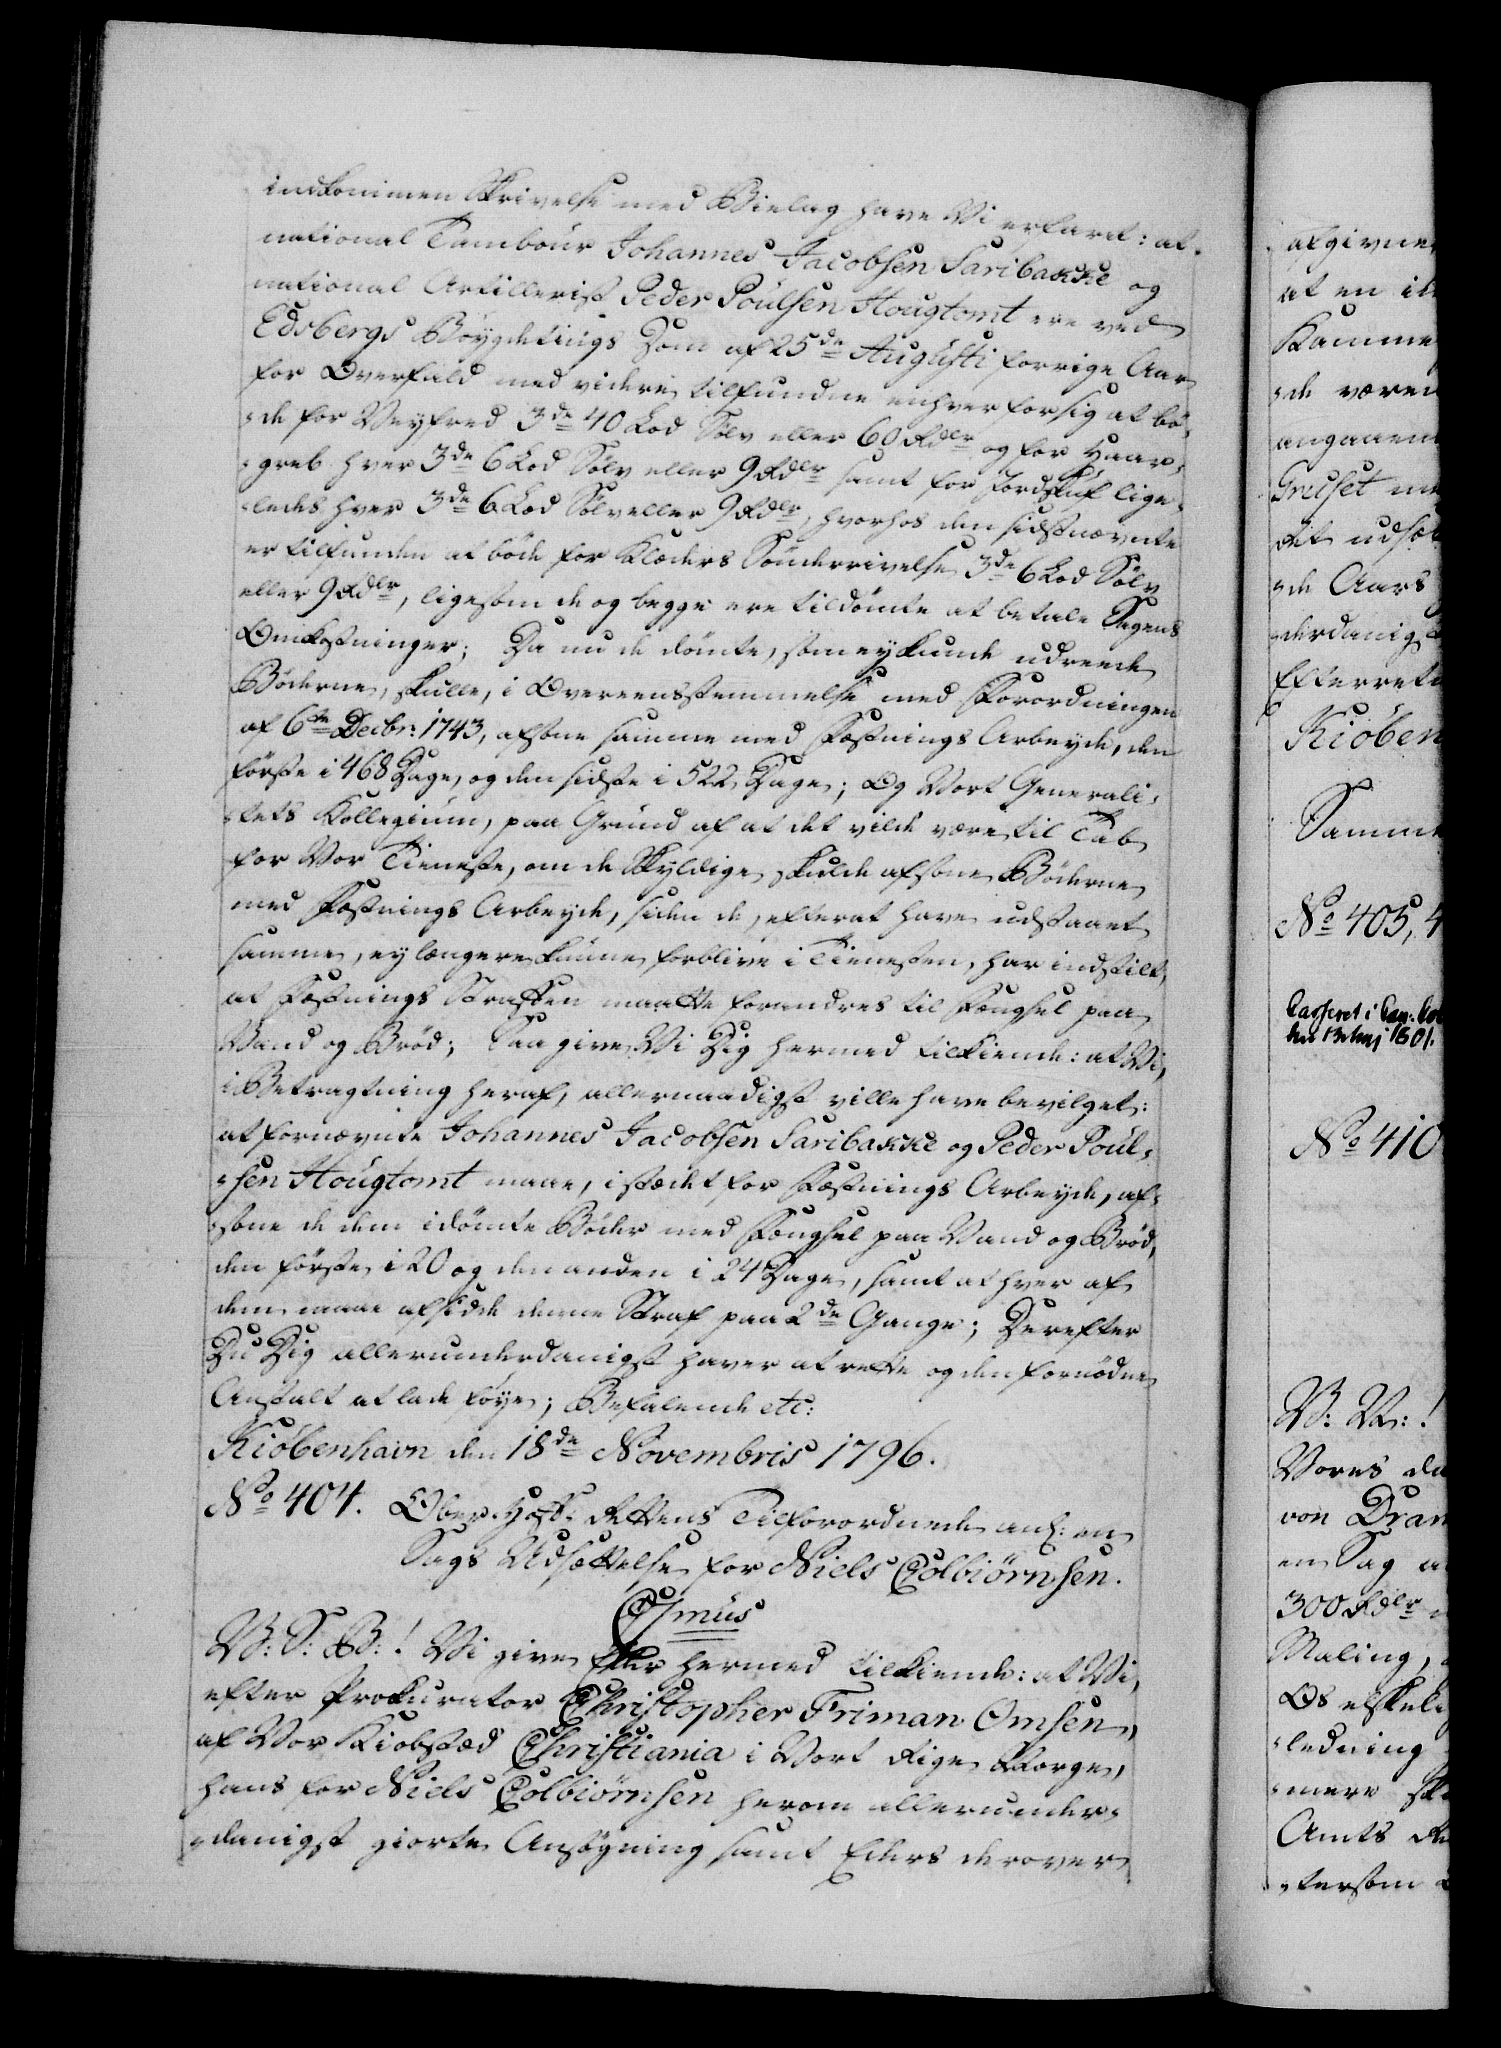 indkommen Skrivelse med Bielag have Vi erfaret: at
national Tambour Johannes Jacobsen Saribakke og
national Artillerist Peder Poulsen Hougtomt ere ved
Edsbergs Böygdetings Dom af 25de Augusti forrige Aar
for Overfald med videre, tilfundne enhver for sig at bö-
-de for Veyfred 3de 40 Lod Sölv eller 60 Rdlr og for Haar-
-greb hver 3de 6 Lod Sölv eller 9 Rdlr samt for Jordskuf lige-
-ledes hver 3de 6 Lod Sölv eller 9 Rdlr, hvorhos den sidstnævnte
er tilfunden at böde for Klæders Sönderrivelse 3de 6 Lod Sölv
eller 9 Rdlr, ligesom de og begge ere tildömte at betale Sagens
Omkostninger; Da nu de dömte, som ey kunde udreede
Böderne, skulle, i Overeensstemmelse med Forordningen
af 6te Decbr: 1743, afsone samme med Fæstnings Arbeyde, den
förste i 468 Dage, og den sidste i 522 Dage; Og Vort Generali-
-tets Kollegium, paa Grund af at det vilde være til Tab
for Vor Tieneste, om de Skyldige skulde afsone Böderne
med Fæstnings Arbeyde, siden de, efter at have udstaaet
samme, ey længere kunne forblive i Tienesten, har indstilt,
at Fæstnings Straffen maatte forandres til Fængsel paa
Vand og Bröd; Saa give Vi Dig hermed tilkiende: at Vi,
i Betragtning heraf, allernaadigst ville have bevilget:
at fornævnte Johannes Jacobsen Saribakke og Peder Poul-
-sen Hougtomt maae, i stædet for Fæstnings Arbeyde, af-
-sone de dem idömte Böder med Fængsel paa Vand og Bröd,
den förste i 20 og den anden i 24 Dage, samt at hver af
dem maae afsidde denne Straf paa 2de Gange; Derefter
Du Dig allerunderdanigst haver at rette og den fornödne
Anstalt at lade föye; Befalende etc:
Kiöbenhavn den 18de Novembris 1796.
No 404. Ober-Hof-Rettens Tilforordnede anl: en
Sags Udsættelse for Niels Colbiörnsen.
C7mus
V: S: B:! Vi give Eder hermed tilkiende: at Vi,
efter Prokurator Christopher Friman Omsen,
af Vor Kiöbstæd Christiania i Vort Rige Norge,
hans for Niels Colbiörnsen herom allerunder-
-danigst giorte Ansögning samt Eders derover
afgivne
at en
Kamme
-de væren
angaaen
Gruset
det udsæt
-de Aars
-derdanigst
Efterret
Kiöben
Samme
No 405, 4
Casseret i Can: Col
No 410
V: V: !
Vores
von Dram
en Sag
300 Rdlr
Maling,
Os elskeli
-ledning
-mere
Amts
-tersom